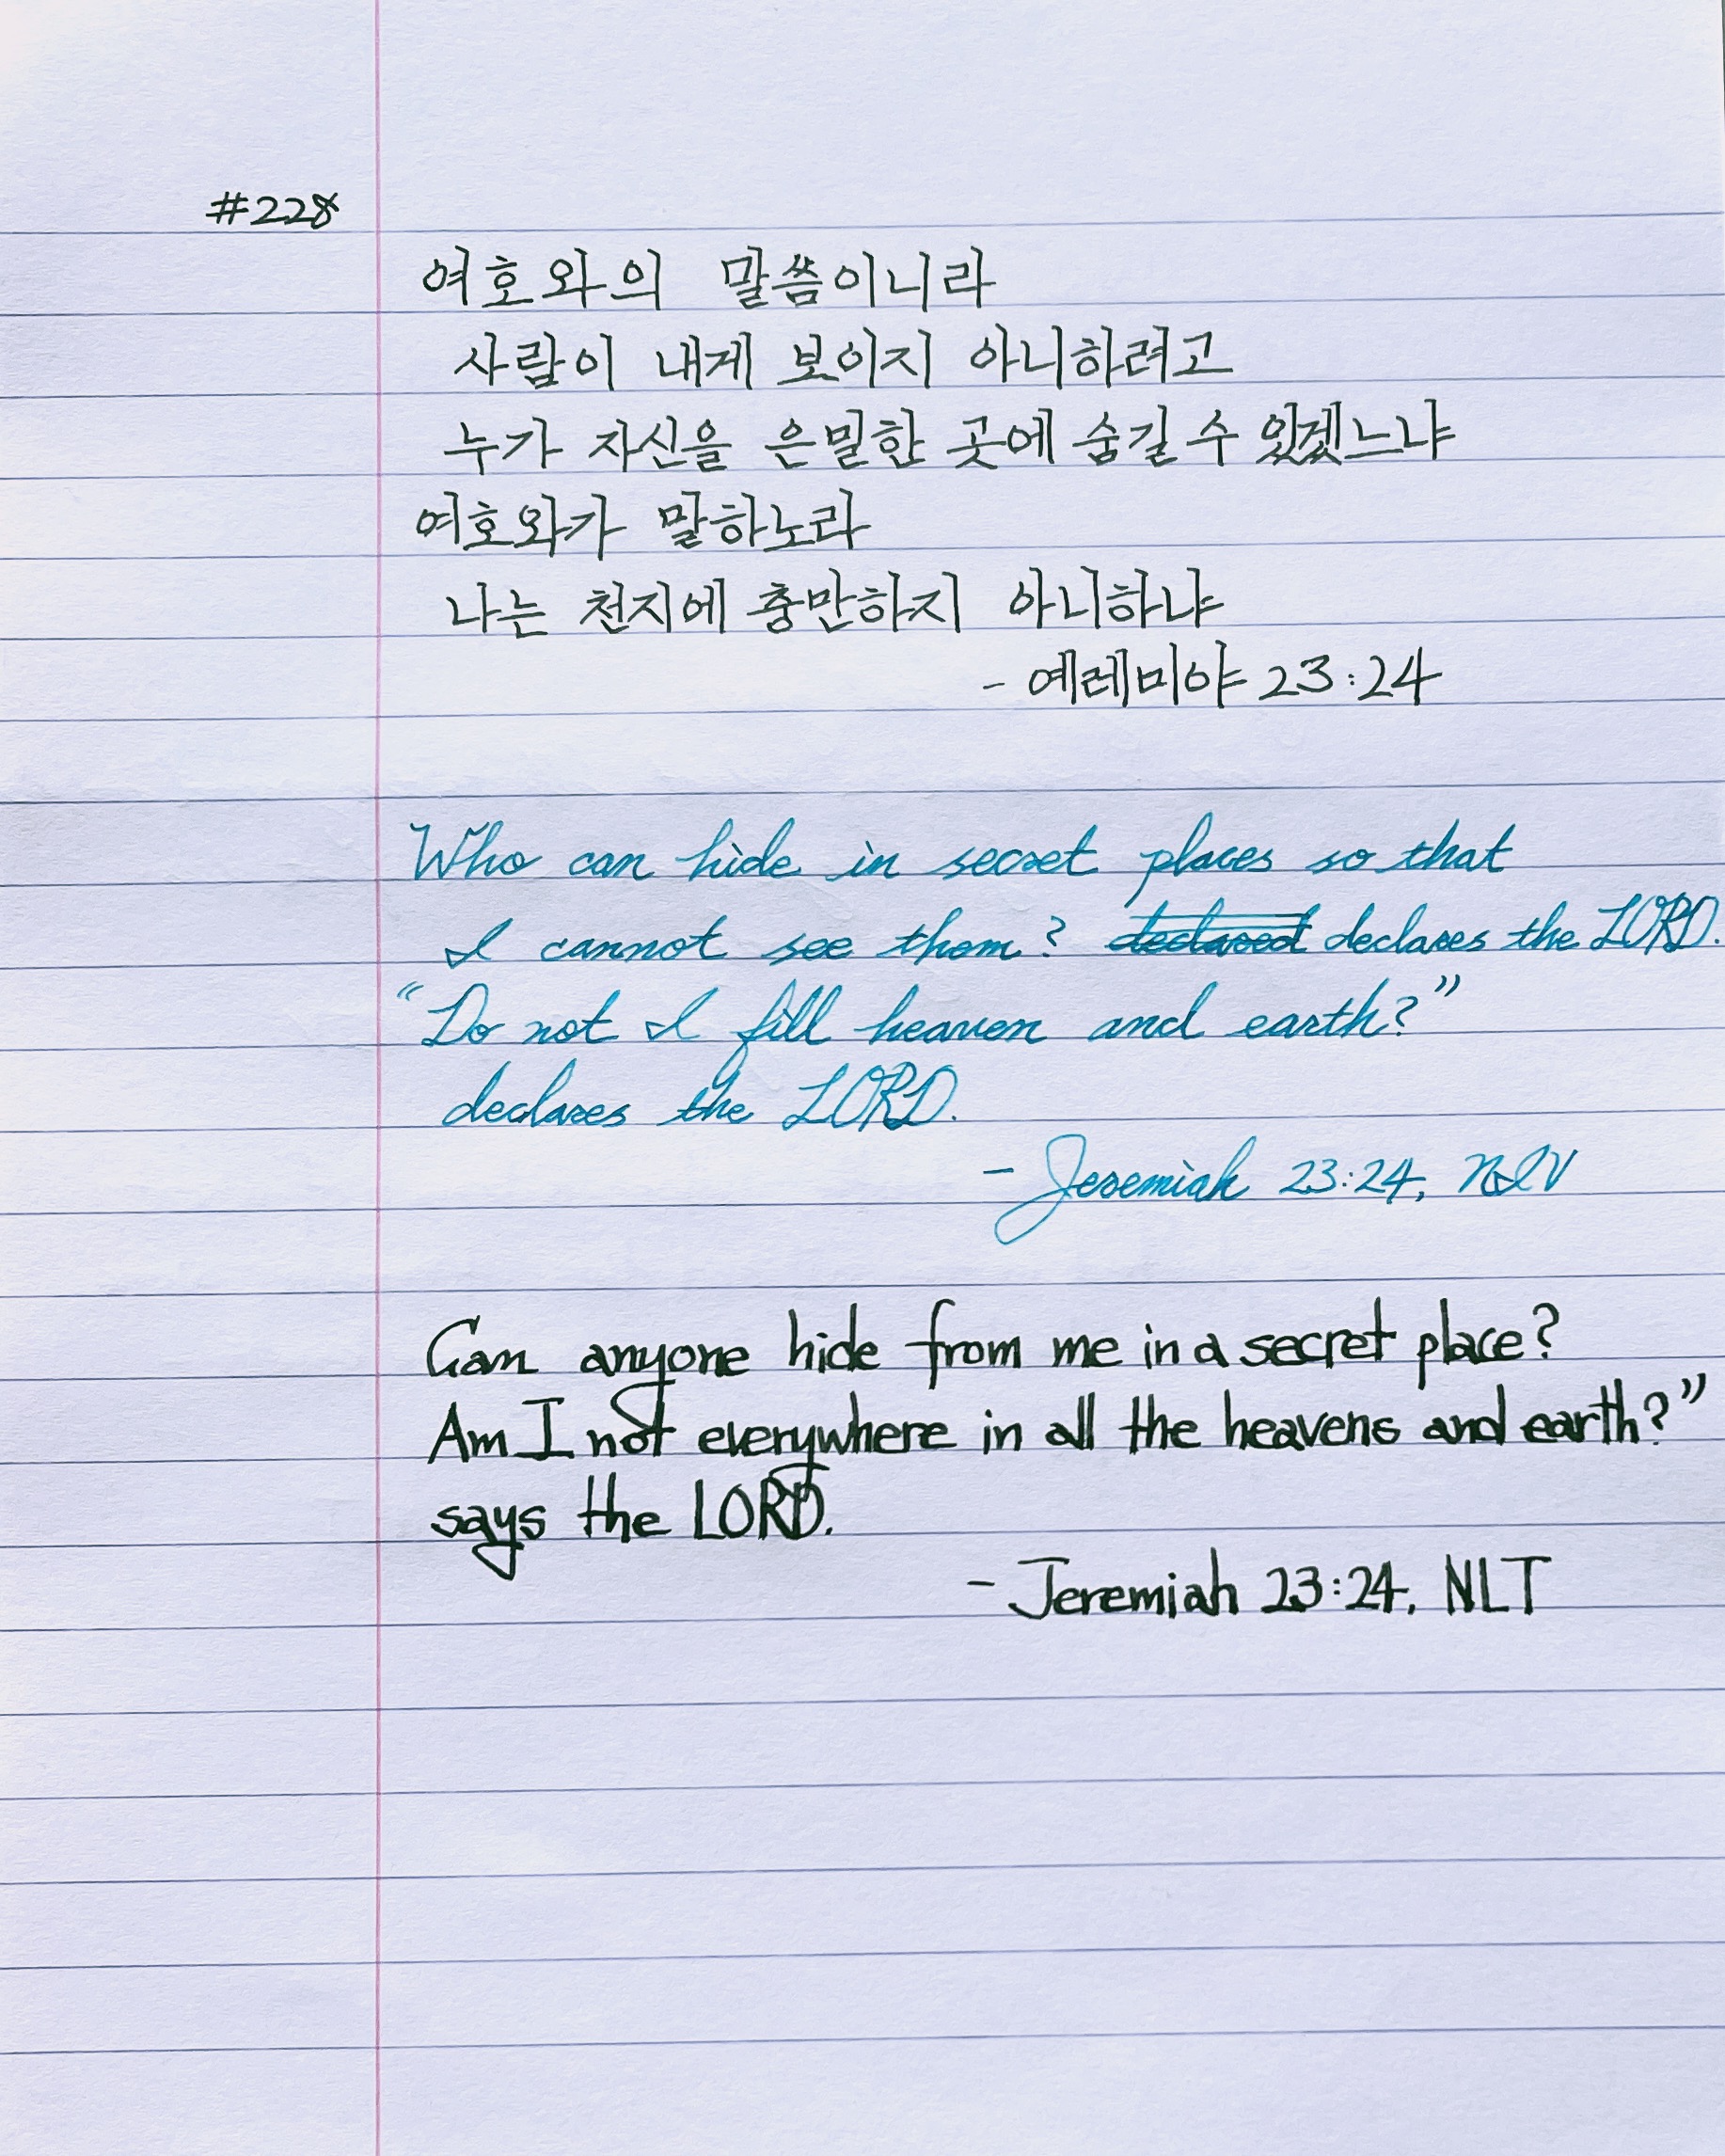 #228
여호와의 말씀이니라
사람이 내게 보이지 아니하려고
누가 자신을 은밀한 곳에 숨길 수 있겠느냐
여호와가 말하노라
나는 천지에 충만하지 아니하냐
- 예레미야 23:24
Who can hide in secret places so that
I cannot see them? declared declares the LORD.
“Do not I fill heaven and earth?”
declares the LORD.
- Jeremiah 23:24, NIV
Can anyone hide from me in a secret place?
Am I not everywhere in all the heavens and earth?”
says the LORD.
- Jeremiah 23:24, NLT